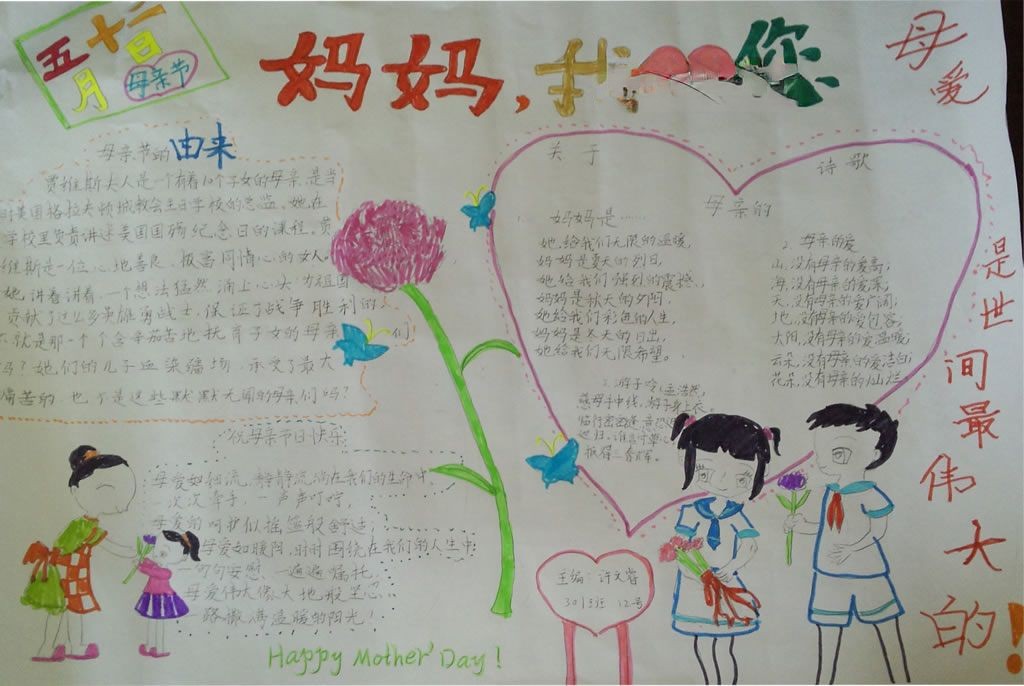 五月十二日
母亲节
妈妈,我 您
母爱
是世间最伟大的!
母亲节的由来
贾维斯夫人是一个有着10个子女的母亲,是当
时美国格拉夫顿城教会主日学校的总监。她在
学校里负责讲述美国国殇纪念日的课程。贾
维斯是一位心地善良,极富同情心的女人。
她讲着讲着,一个想法猛然涌上心头:为祖国
贡献了这么多英雄勇战士,保证了战争胜利的
不就是那一个个含辛茹苦地抚育子女的母亲们
吗?她们的儿子血染疆场,承受了最大
痛苦的,也不是这些默默无闻的母亲们吗?
祝母亲节日快乐
母爱如细流,静静流淌在我们的生命中
次次牵手,一声声叮咛,
母爱的呵护似摇篮般舒适;
母爱如暖阳,时时围绕在我们的人生中
一句句安慰,一遍遍嘱托,
母爱伟大像大地般坚心
一路撒满温暖的阳光!
Happy Mother' Day!
关于
母亲的
诗歌
1.
妈妈是……
她给我们无限的温暖,
妈妈是夏天的烈日,
她给我们强烈的震撼,
妈妈是秋天的夕阳,
她给我们彩色的人生,
妈妈是冬天的日出,
她给我们无限希望。
2. 母亲的爱
山,没有母亲的爱高;
海,没有母亲的爱深;
天,没有母亲的爱广阔;
地,没有母亲的爱包容;
太阳,没有母亲的爱温暖;
云朵,没有母亲的爱洁白;
花朵,没有母亲的灿烂
3. 游子吟(孟浩然)
慈母手中线,游子身上衣。
临行密密缝,意恐迟
迟归。谁言寸草心,
报得三春晖。
主编:许文睿
301班 12号